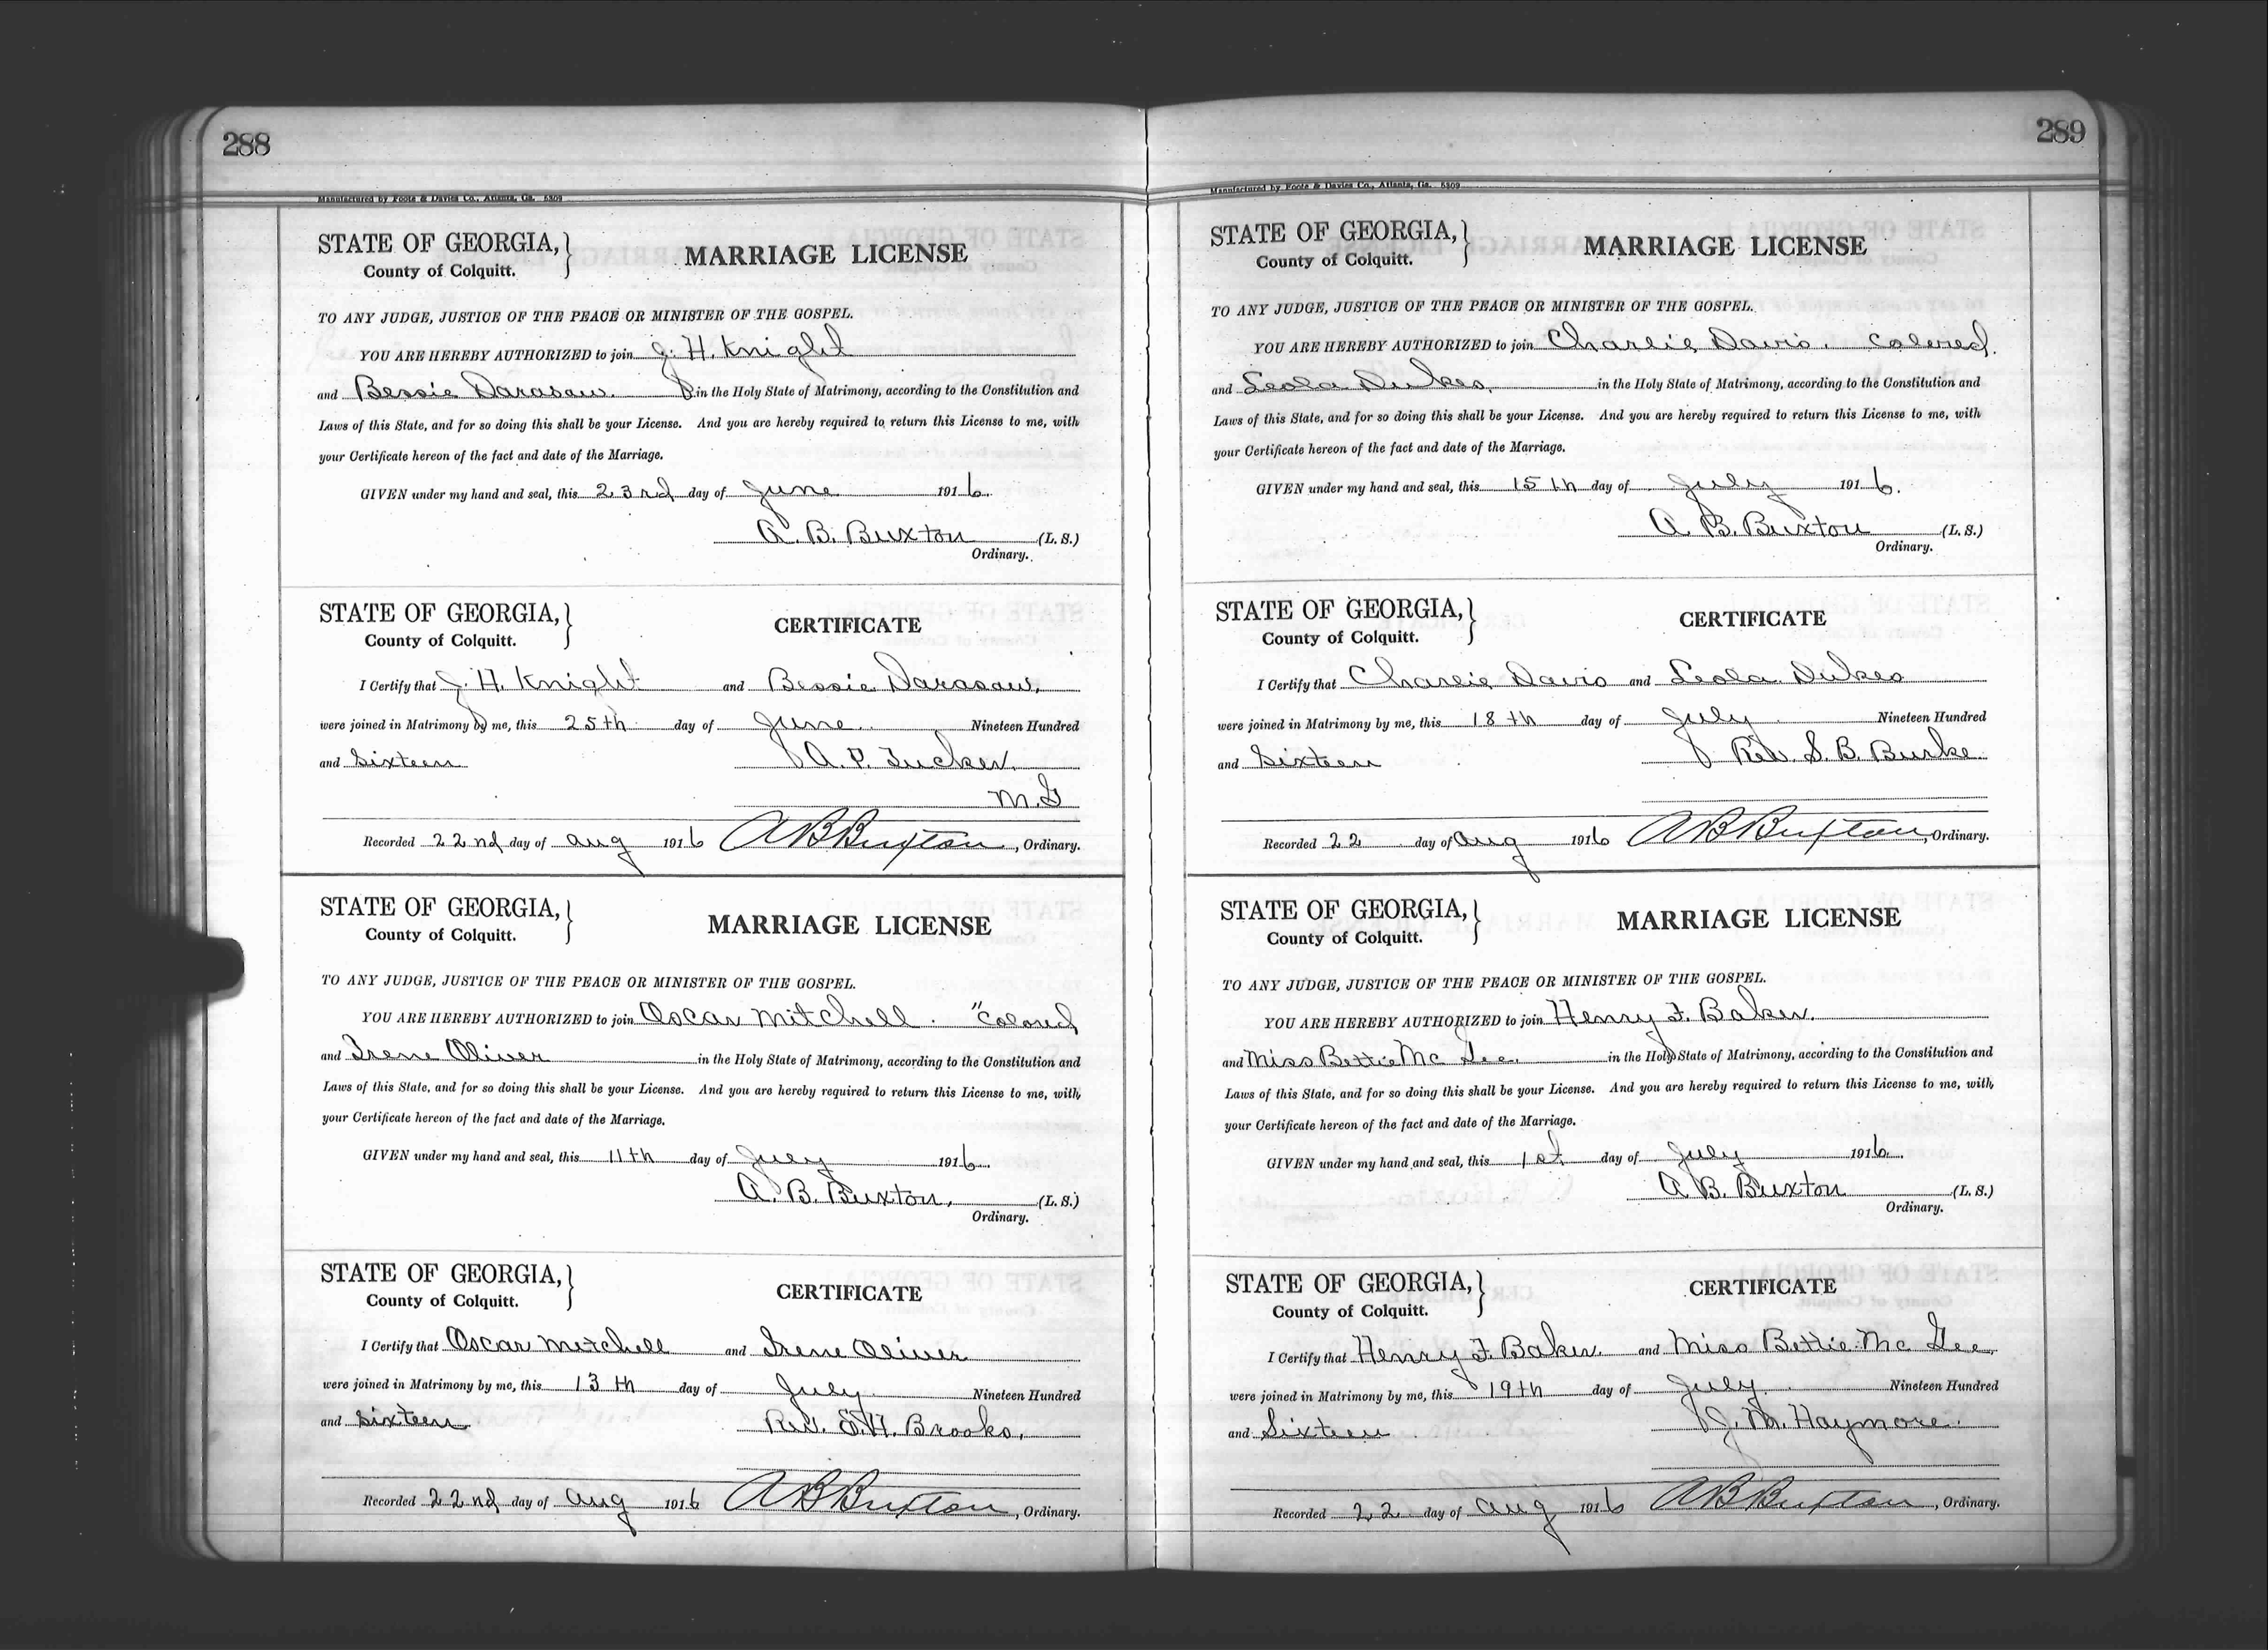 288
Manufactured by Foote & Davies Co., Atlanta, Ga. 5309
STATE OF GEORGIA,
County of Colquitt.
MARRIAGE LICENSE
TO ANY JUDGE, JUSTICE OF THE PEACE OR MINISTER OF THE GOSPEL.
YOU ARE HEREBY AUTHORIZED to join J. H. Knight
and Bessie Darasaw. in the Holy State of Matrimony, according to the Constitution and
Laws of this State, and for so doing this shall be your License. And you are hereby required to return this License to me, with
your Certificate hereon of the fact and date of the Marriage.
GIVEN under my hand and seal, this 23rd day of June 1916.
A. B. Buxton (L. S.)
Ordinary.
STATE OF GEORGIA,
County of Colquitt.
CERTIFICATE
I Certify that J. H. Knight and Bessie Darasaw.
were joined in Matrimony by me, this 25th day of June Nineteen Hundred
and Sixteen A. P. Tucker.
M.G
Recorded 22nd day of Aug 1916 A B Buxton, Ordinary.
STATE OF GEORGIA,
County of Colquitt.
MARRIAGE LICENSE
TO ANY JUDGE, JUSTICE OF THE PEACE OR MINISTER OF THE GOSPEL.
YOU ARE HEREBY AUTHORIZED to join Oscar Mitchell. "Colored
and Irene Oliver in the Holy State of Matrimony, according to the Constitution and
Laws of this State, and for so doing this shall be your License. And you are hereby required to return this License to me, with
your Certificate hereon of the fact and date of the Marriage.
GIVEN under my hand and seal, this 11th day of July 1916.
A. B. Buxton, (L. S.)
Ordinary.
STATE OF GEORGIA,
County of Colquitt.
CERTIFICATE
I Certify that Oscar Mitchell and Irene Oliver
were joined in Matrimony by me, this 13th day of July Nineteen Hundred
and Sixteen Rev. S.H. Brooks.
Recorded 22nd day of Aug 1916 A B Buxton, Ordinary.
289
Manufactured by Foote & Davies Co., Atlanta, Ga. 5309
STATE OF GEORGIA,
County of Colquitt.
MARRIAGE LICENSE
TO ANY JUDGE, JUSTICE OF THE PEACE OR MINISTER OF THE GOSPEL.
YOU ARE HEREBY AUTHORIZED to join Charlie Davis. Colored.
and Leola Dukes. in the Holy State of Matrimony, according to the Constitution and
Laws of this State, and for so doing this shall be your License. And you are hereby required to return this License to me, with
your Certificate hereon of the fact and date of the Marriage.
GIVEN under my hand and seal, this 15th day of July 1916.
A. B. Buxton (L. S.)
Ordinary.
STATE OF GEORGIA,
County of Colquitt.
CERTIFICATE
I Certify that Charlie Davis and Leola Dukes
were joined in Matrimony by me, this 18th day of July Nineteen Hundred
and Sixteen Rev. S. B. Burke.
Recorded 22 day of Aug 1916 A B Buxton, Ordinary.
STATE OF GEORGIA,
County of Colquitt.
MARRIAGE LICENSE
TO ANY JUDGE, JUSTICE OF THE PEACE OR MINISTER OF THE GOSPEL.
YOU ARE HEREBY AUTHORIZED to join Henry F. Baker.
and Miss Bettie Mc Gee. in the Holy State of Matrimony, according to the Constitution and
Laws of this State, and for so doing this shall be your License. And you are hereby required to return this License to me, with
your Certificate hereon of the fact and date of the Marriage.
GIVEN under my hand and seal, this 1st day of July 1916.
A. B. Buxton (L. S.)
Ordinary.
STATE OF GEORGIA,
County of Colquitt.
CERTIFICATE
I Certify that Henry F. Baker. and Miss Bettie Mc Gee.
were joined in Matrimony by me, this 19th day of July Nineteen Hundred
and Sixteen J. M. Haymore.
Recorded 22 day of Aug 1916 A B Buxton, Ordinary.